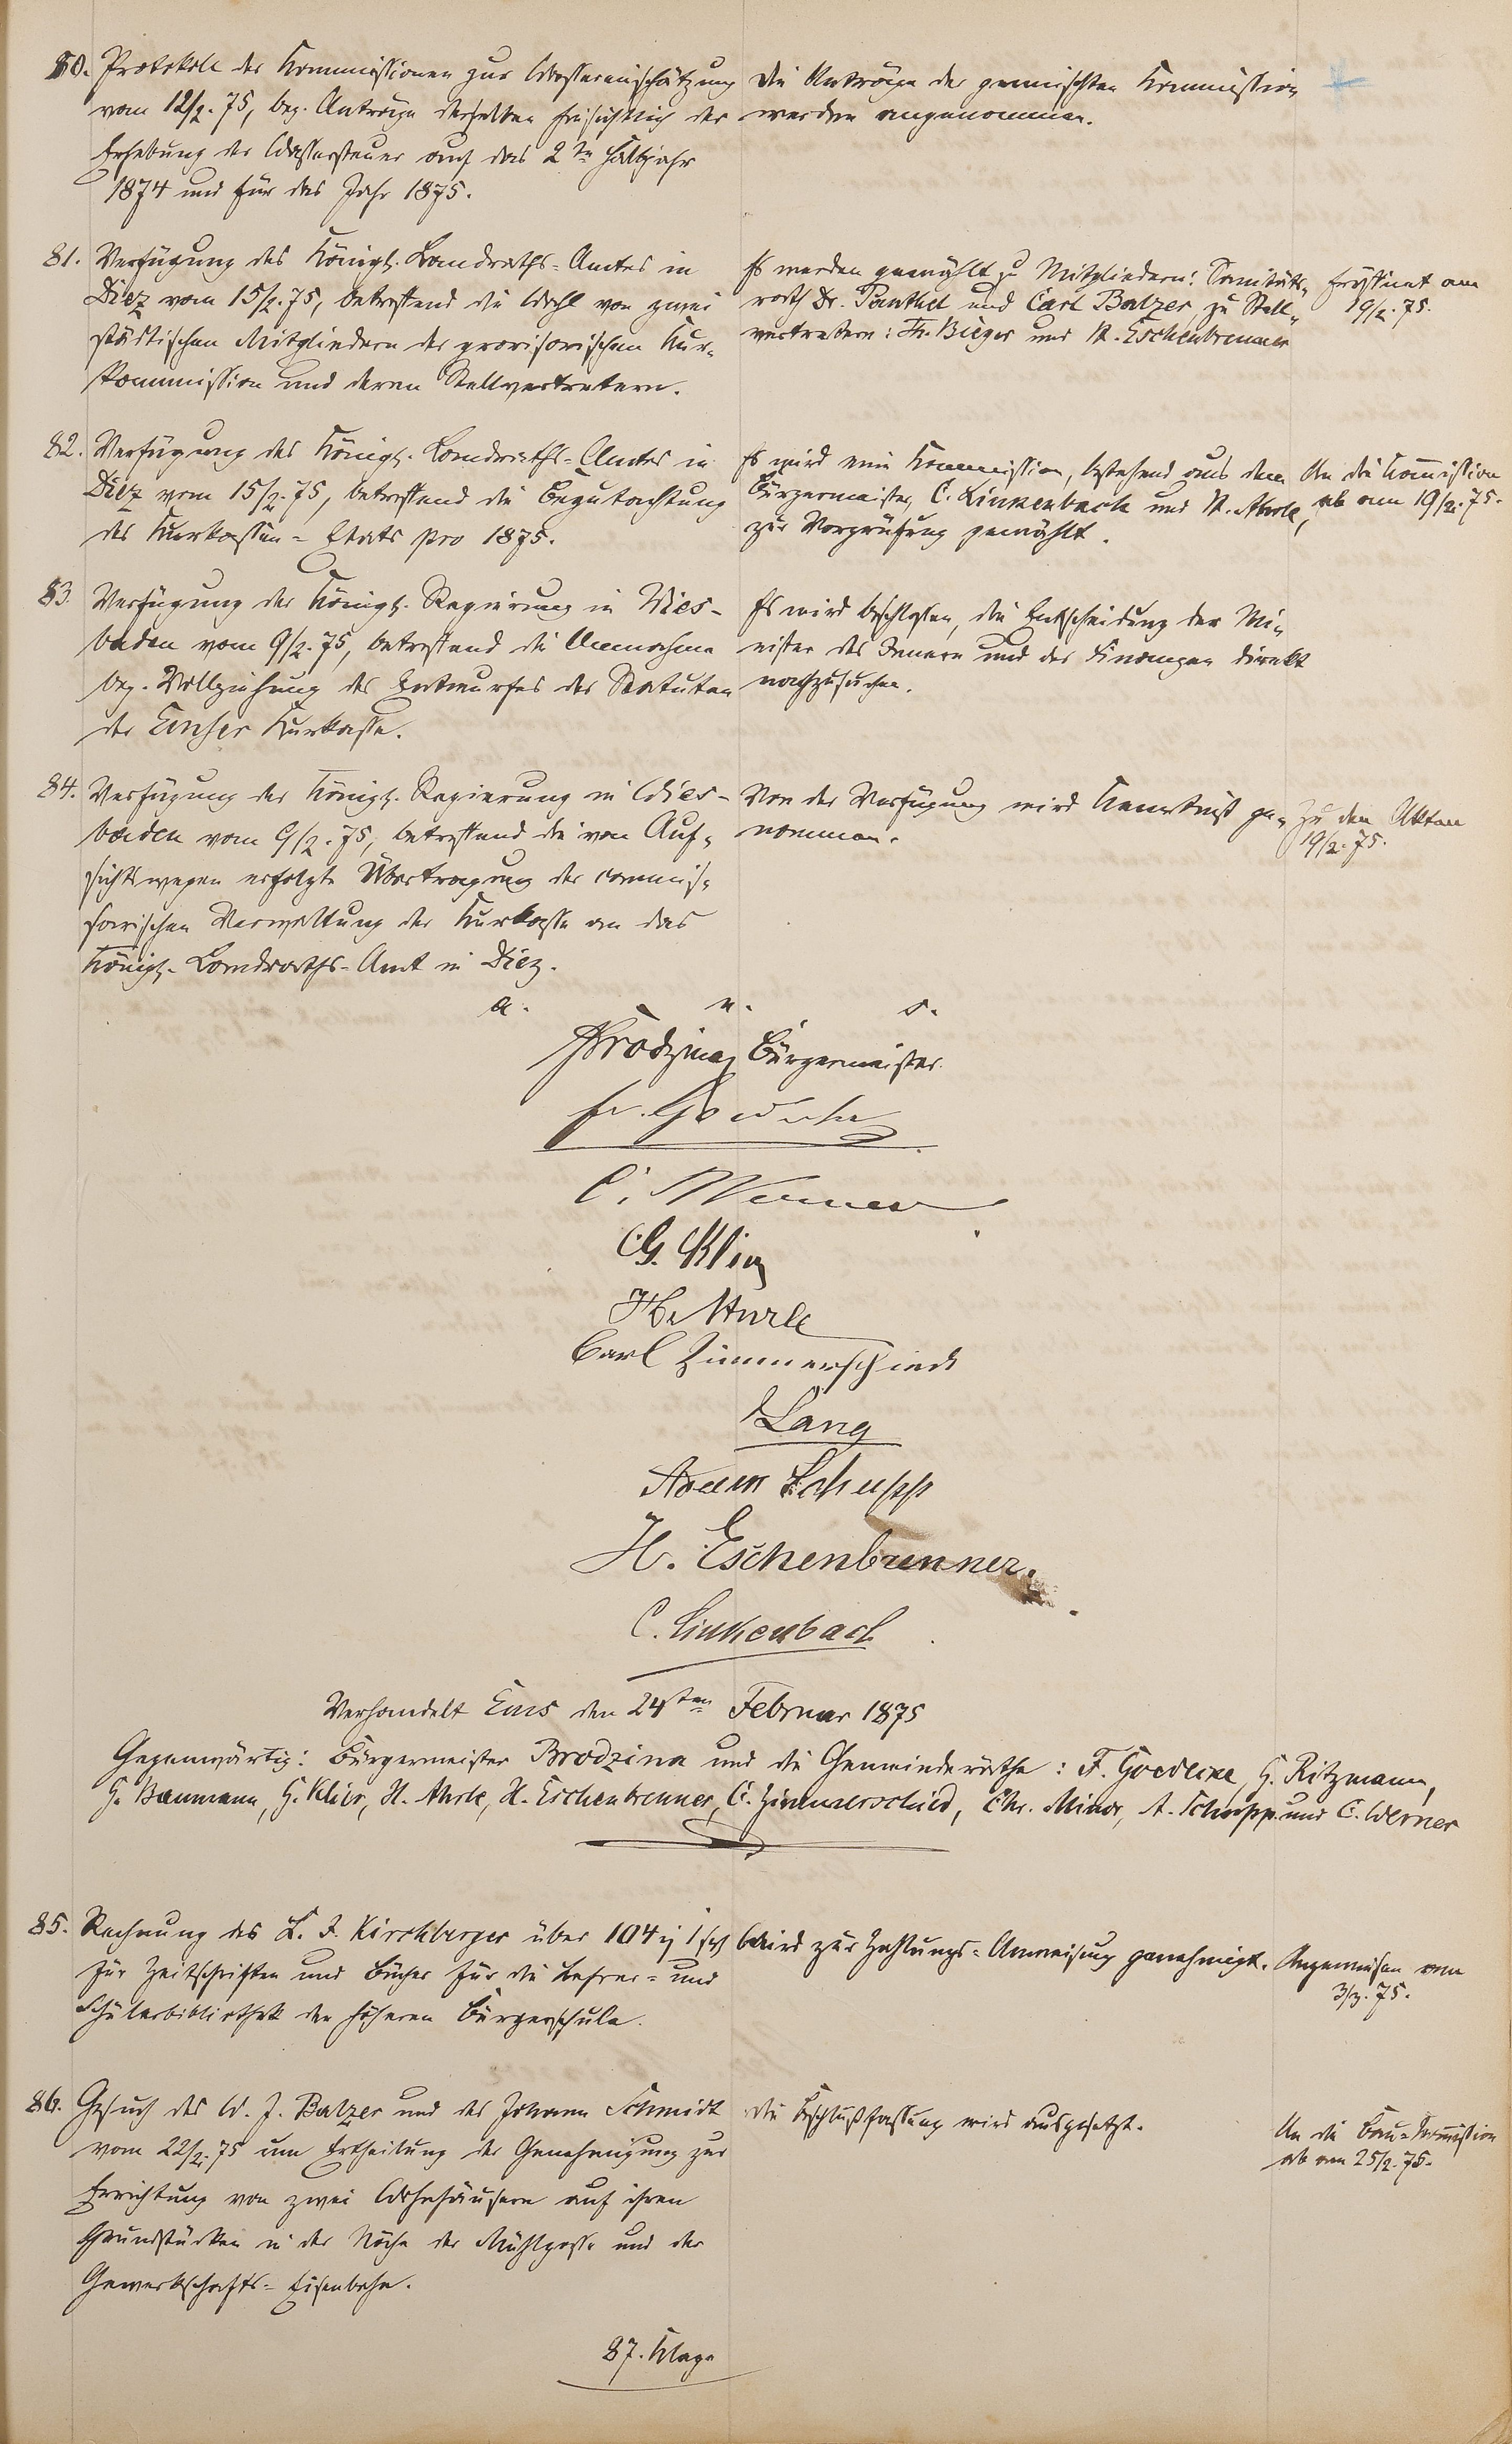 80. Protokoll der Kommissionen zur Wassereinschätzung
vom 12/2. 75, bez. Anträge derselben hinsichtlich der
Erhebung der Wassersteuer auf das 2te Halbjahr
1874 und für das Jahr 1875.
Die Anträge der gemischten Kommission
werden angenommen.
81. Verfügung des Königl. Landraths-Amtes in
Diez vom 15/2. 75, betreffend die Wahl von zwei
städtischen Mitgliedern der provisorischen Kur-
kommission und deren Stellvertretern.
Es werden gewählt zu Mitgliedern: Sanitäts-
rath Dr. Panthel und Carl Balzer, zu Stell-
vertretern: Fr. Bieger und H. Eschenbrenner
Eröffnet am
19/2. 75.
82. Verfügung des Königl. Landraths-Amtes in
Diez vom 15/2. 75, betreffend die Begutachtung
des Kurkassen-Etats pro 1875.
Es wird eine Kommission, bestehend aus dem
Bürgermeister, C. Linkenbach und H. Ahrle,
zur Vorprüfung gewählt.
An die Kommission
ab am 19/2. 75.
83. Verfügung der Königl. Regierung in Wies-
baden vom 9/2. 75, betreffend die Annahme
bez. Vollziehung des Entwurfes der Statuten
der Emser Kurkasse.
Es wird beschlossen, die Entscheidung der Mi-
nister des Innern und der Finanzen direkt
nachzusuchen.
84. Verfügung der Königl. Regierung in Wies-
baden vom 9/2. 75, betreffend die von Auf-
sichtswegen erfolgte Übertragung der commis-
sarischen Verwaltung der Kurkasse an das
Königl. Landraths-Amt in Diez.
Von der Verfügung wird Kenntniß ge-
nommen.
Zu den Akten
19/2. 75.
a. u. s.
Brodzina Bürgermeister.
Fr. Goedecke
C. Werner
G. Klier
H. Ahrle
Carl Zimmerschied
Lang
Adam Schupp
H. Eschenbrenner.
C. Linkenbach
Verhandelt Ems den 24sten Februar 1875
Gegenwärtig: Bürgermeister Brodzina und die Gemeinderäthe: F. Goedecke, G. Ritzmann,
G. Baumann, G. Klier, H. Ahrle, H. Eschenbrenner, C. Zimmerschied, Chr. Minor, A. Schupp und C. Werner
85. Rechnung des L. J. Kirchberger über 104 1
für Zeitschriften und Bücher für die Lehrer- und
Schülerbibliothek der höheren Bürgerschule.
Wird zur Zahlungs-Anweisung genehmigt.
Angewiesen am
3/3. 75.
86. Gesuch des W. J. Balzer und des Johann Schmidt
vom 22/2. 75 um Ertheilung der Genehmigung zur
Errichtung von zwei Wohnhäusern auf ihren
Grundstücken in der Nähe der Mühlgasse und der
Gewerkschafts-Eisenbahn.
Die Beschlußfassung wird ausgesetzt.
An die Bau-Kommission
ab am 25/2. 75.
87. Klage